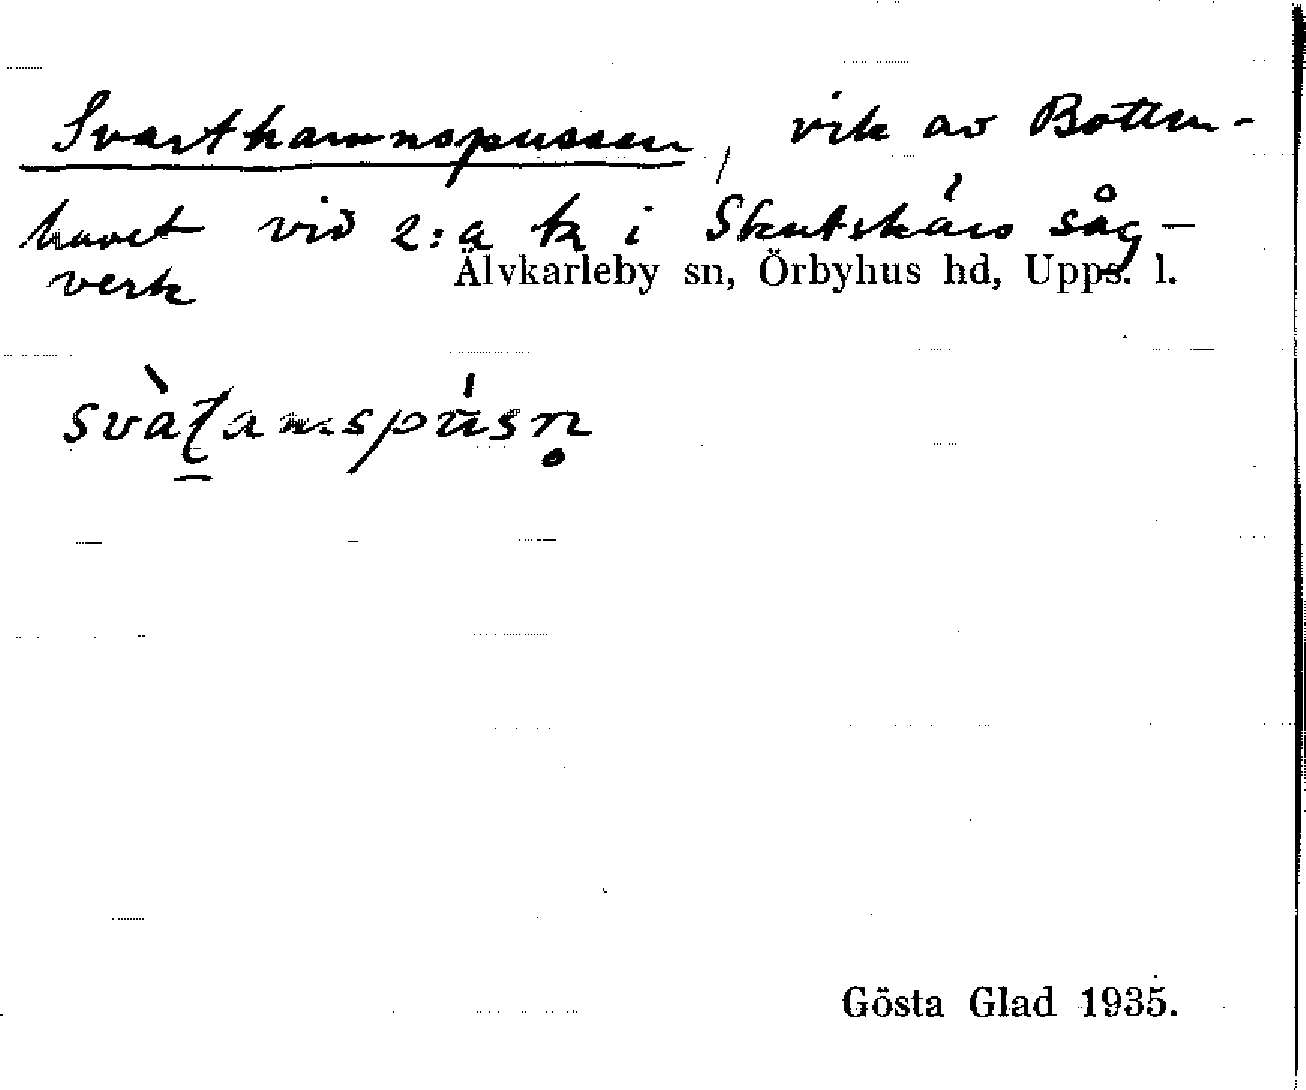 Svarthamnspussen, vik av Botten-
havet vid 2:a k i Skutskärs såg-
verk
Älvkarleby sn, Örbyhus hd, Upps. l.
svàʈamspúsn̥
Gösta Glad 1935.